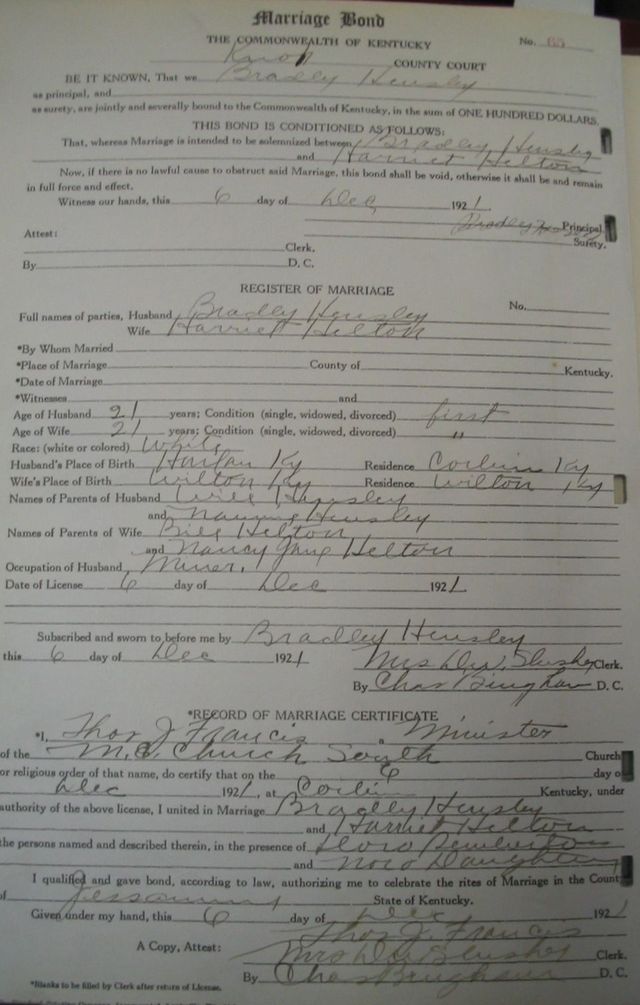 Marriage Bond
THE COMMONWEALTH OF KENTUCKY No. 65
Knox COUNTY COURT
BE IT KNOWN, That we Bradley Hensley
as principal, and
as surety, are jointly and severally bound to the Commonwealth of Kentucky, in the sum of ONE HUNDRED DOLLARS.
THIS BOND IS CONDITIONED AS FOLLOWS:
That, whereas Marriage is intended to be solemnized between Bradley Hensley
and Harriet Helton
Now, if there is no lawful cause to obstruct said Marriage, this bond shall be void, otherwise it shall be and remain
in full force and effect.
Witness our hands, this 6 day of Dec 1921.
Bradley Hensley Principal.
Attest: Surety.
Clerk.
By D. C.
REGISTER OF MARRIAGE
Full names of parties, Husband Bradley Hensley No.
Wife Harriet Helton
*By Whom Married
*Place of Marriage County of Kentucky.
*Date of Marriage
*Witnesses and
Age of Husband 21 years; Condition (single, widowed, divorced) first
Age of Wife 21 years; Condition (single, widowed, divorced) "
Race: (white or colored) White
Husband's Place of Birth Harlan Ky Residence Corbin Ky
Wife's Place of Birth Wilton Ky Residence Wilton Ky
Names of Parents of Husband Will Hensley
and Hensley
Names of Parents of Wife Bill Helton
and Nancy Jane Helton
Occupation of Husband Miner.
Date of License 6 day of Dec 1921.
Subscribed and sworn to before me by Bradley Hensley
this 6 day of Dec 1921 Mrs Slusher Clerk.
By Chas Bingham D. C.
*RECORD OF MARRIAGE CERTIFICATE
*I, Thos J. Francis a Minister
of the M. E. Church South Church
or religious order of that name, do certify that on the 6 day o
Dec 1921, at Corbin Kentucky, under
authority of the above license, I united in Marriage Bradley Hensley
and Harriet Helton
the persons named and described therein, in the presence of
and
I qualified and gave bond, according to law, authorizing me to celebrate the rites of Marriage in the Count
of Jessamine State of Kentucky.
Given under my hand, this 6 day of Dec 1921
Thos J. Francis
A Copy, Attest: Mrs Slusher Clerk.
By Chas Bingham D. C.
*Blanks to be filled by Clerk after return of License.